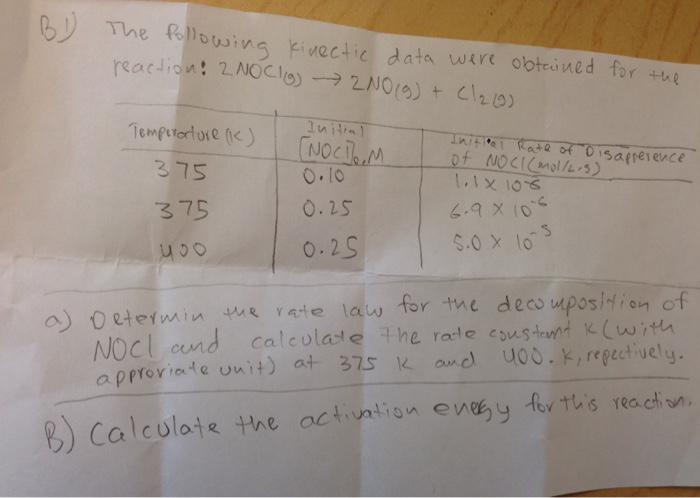 B1) The following kinectic data were obtained for the
reaction: 2NOCl(g) → 2NO(g) + Cl2(g)
Temperature (K) | Initial [NOCl]0, M | Initial Rate of Disapperence of NOCl (mol/L·s)
375 | 0.10 | 1.1 × 10-6
375 | 0.25 | 6.9 × 10-6
400 | 0.25 | 5.0 × 10-5
a) Determin the rate law for the decomposition of
NOCl and calculate the rate constant K (with
approviate unit) at 375 K and 400. K, repectively.
B) Calculate the activation enegy for this reaction.